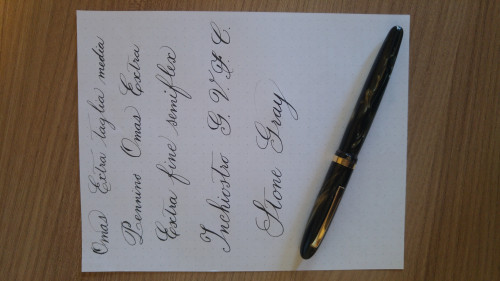 Omas Extra taglia media
Pennino Omas Extra
Extra fine semiflex
Inchiostro G. V. F. C.
Stone Gray